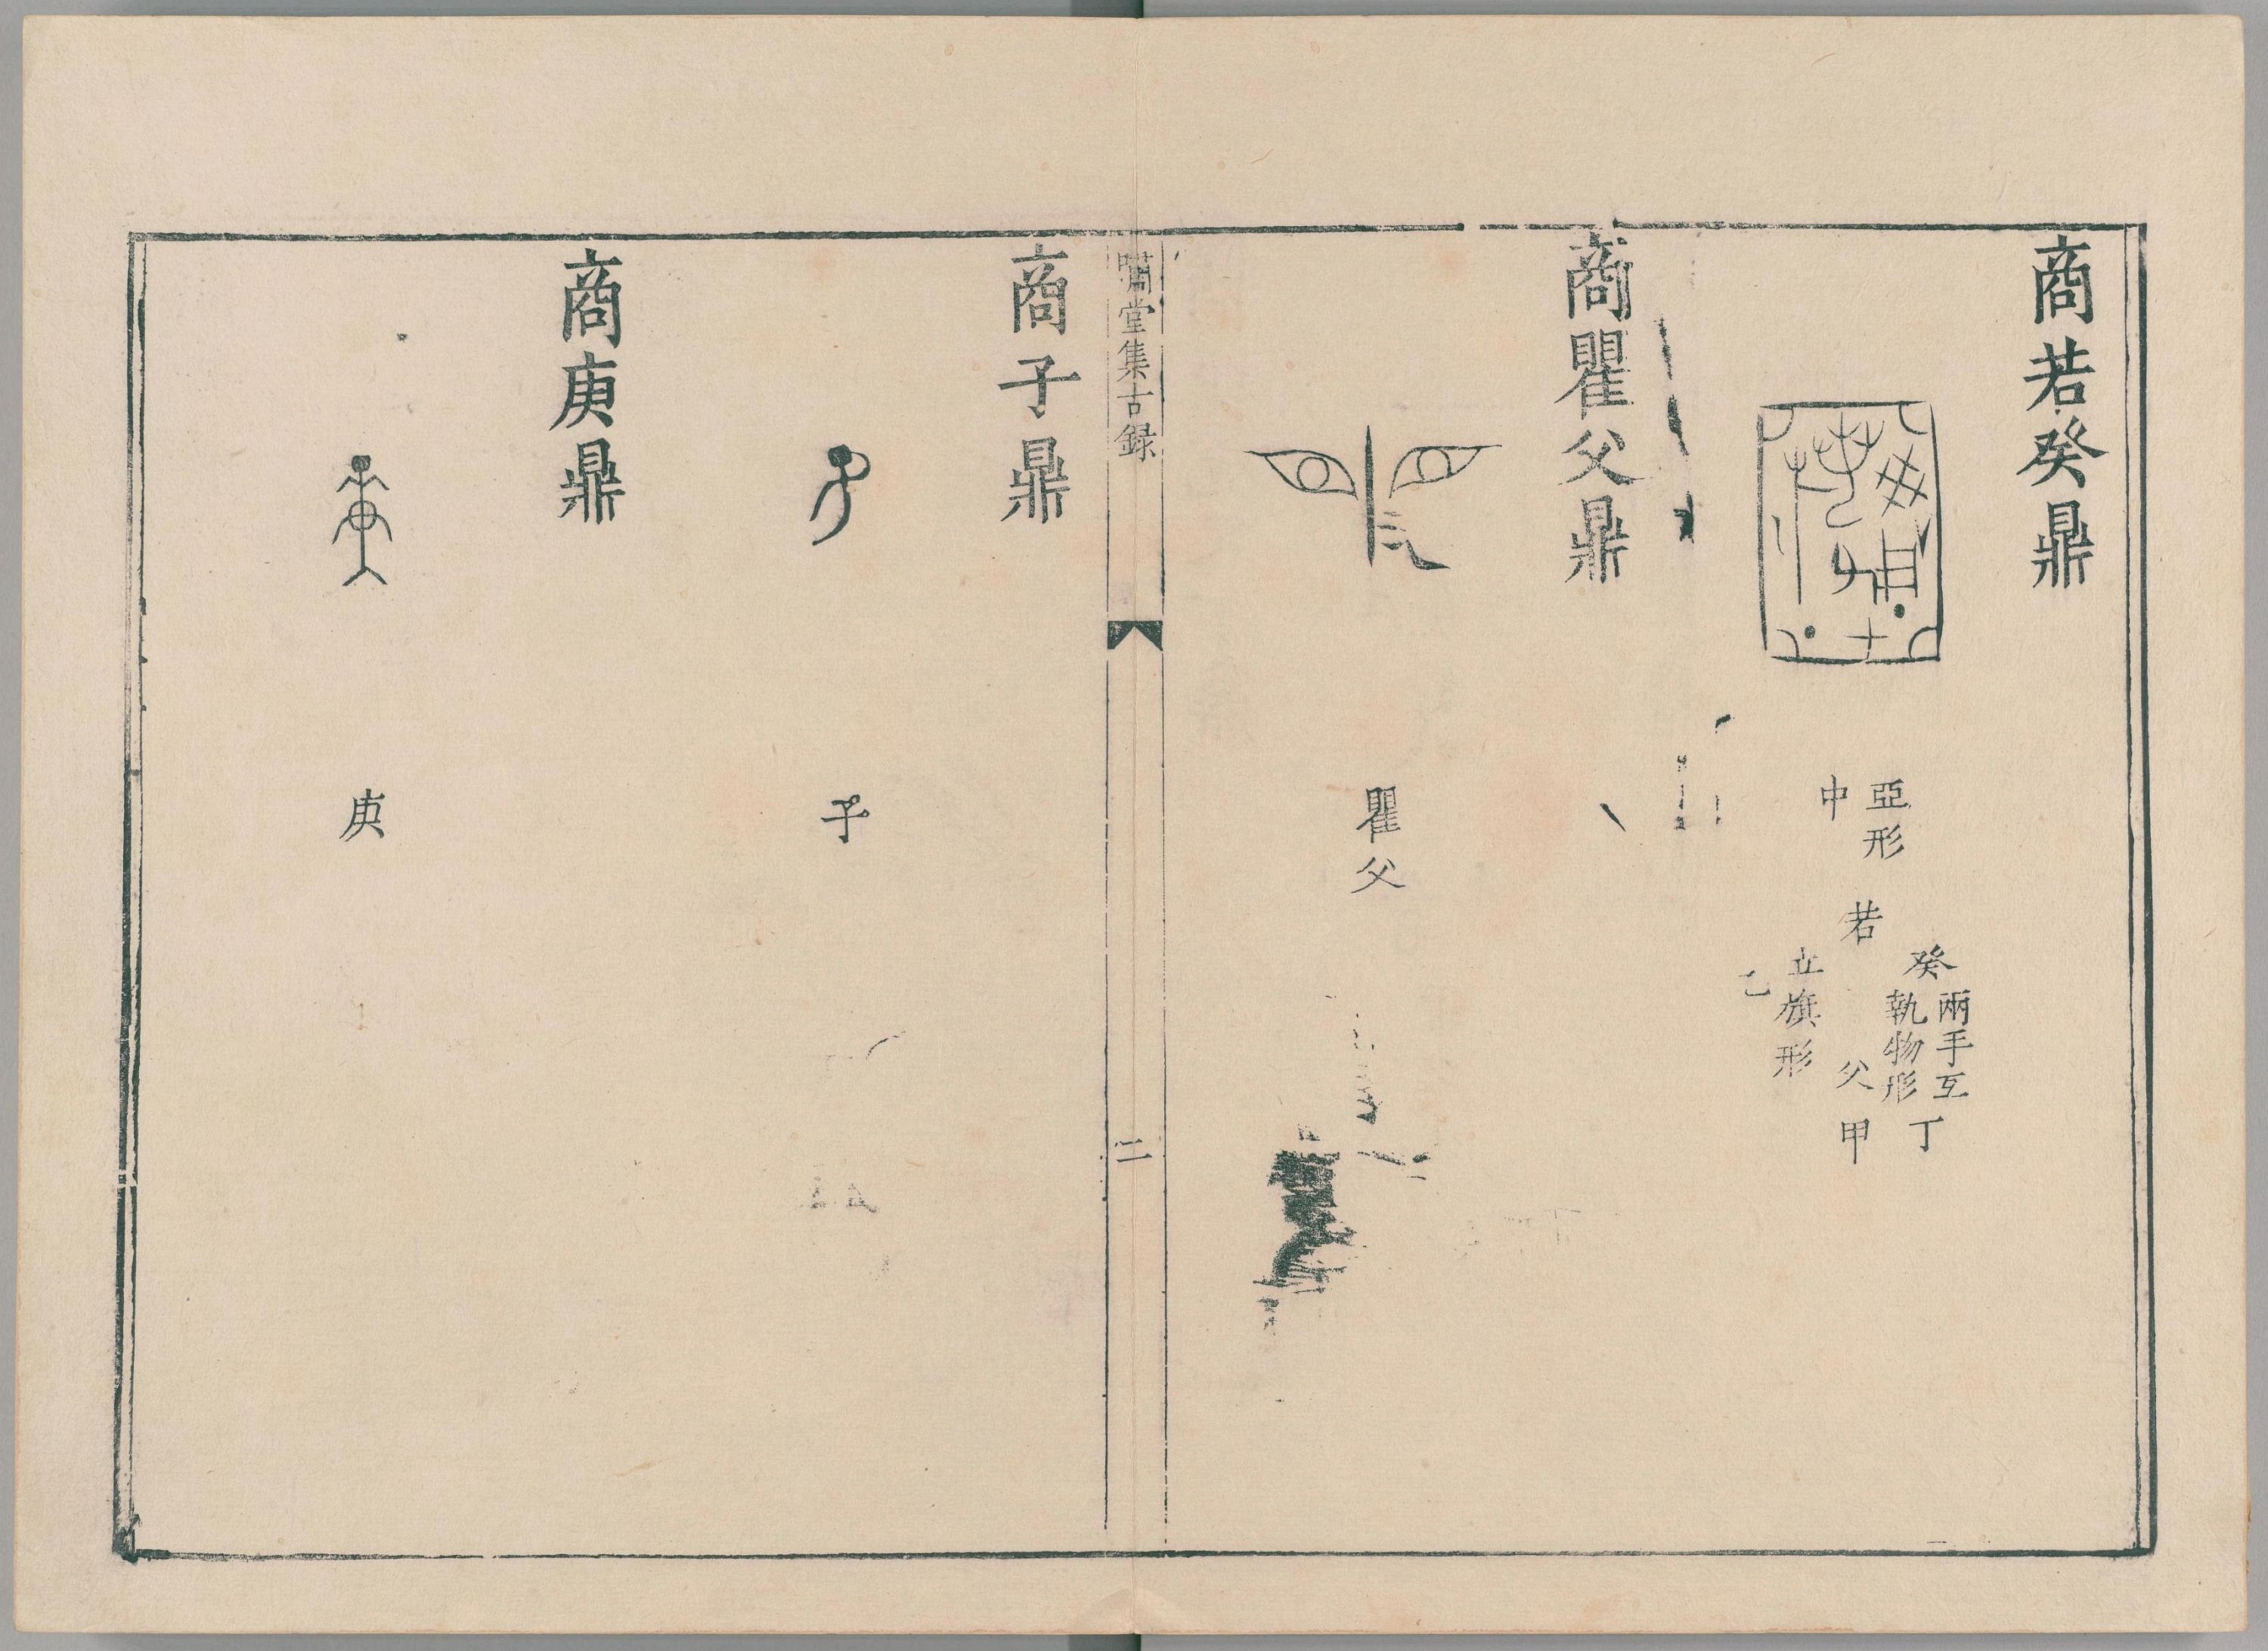 商若癸鼎
亞形
中
若
癸
兩手互
執物形
丁
父甲
立旗形
乙
商瞿父鼎
瞿父
嘯堂集古録
二
商子鼎
子
商庚鼎
庚